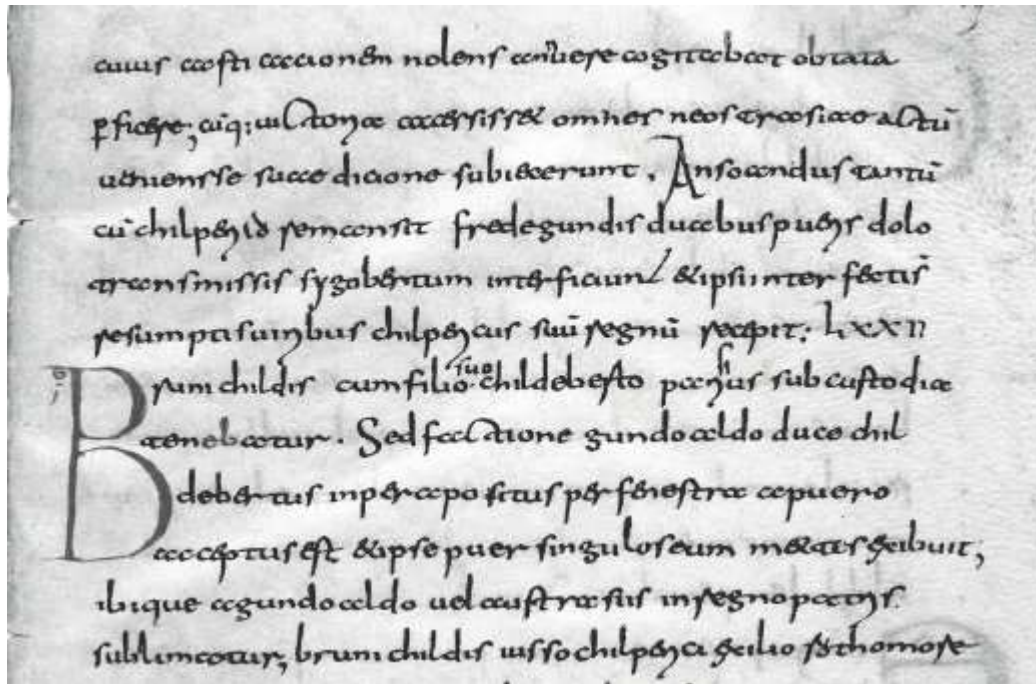 cuius aosti acacionem nolens conuere cogitabat obtata
p ficere; cuq; uictoria accessisset omnes neostrasiae actū
ueniensse suae dicione subiecerunt. Ansoandus tantū
cū chilperico remansit fredegundis ducebus pueris dolo
transmissis sygobertum interficiunt et ipsi interfectis
resumptis uiribus chilpericus suū regnū recepit; lxxii
Brunichildis cum filio suo childeberto parisius sub custodia
tenebatur. Sed factione gundoaldo duce chil
debertus inpera positus per fenestra a puero
acceptus est et ipse puer singulos eum mettis exibuit;
ibique a gundoaldo uel austrasiis in regno patris
sublimatur; brunichildis iusso chilperici exilio thomore